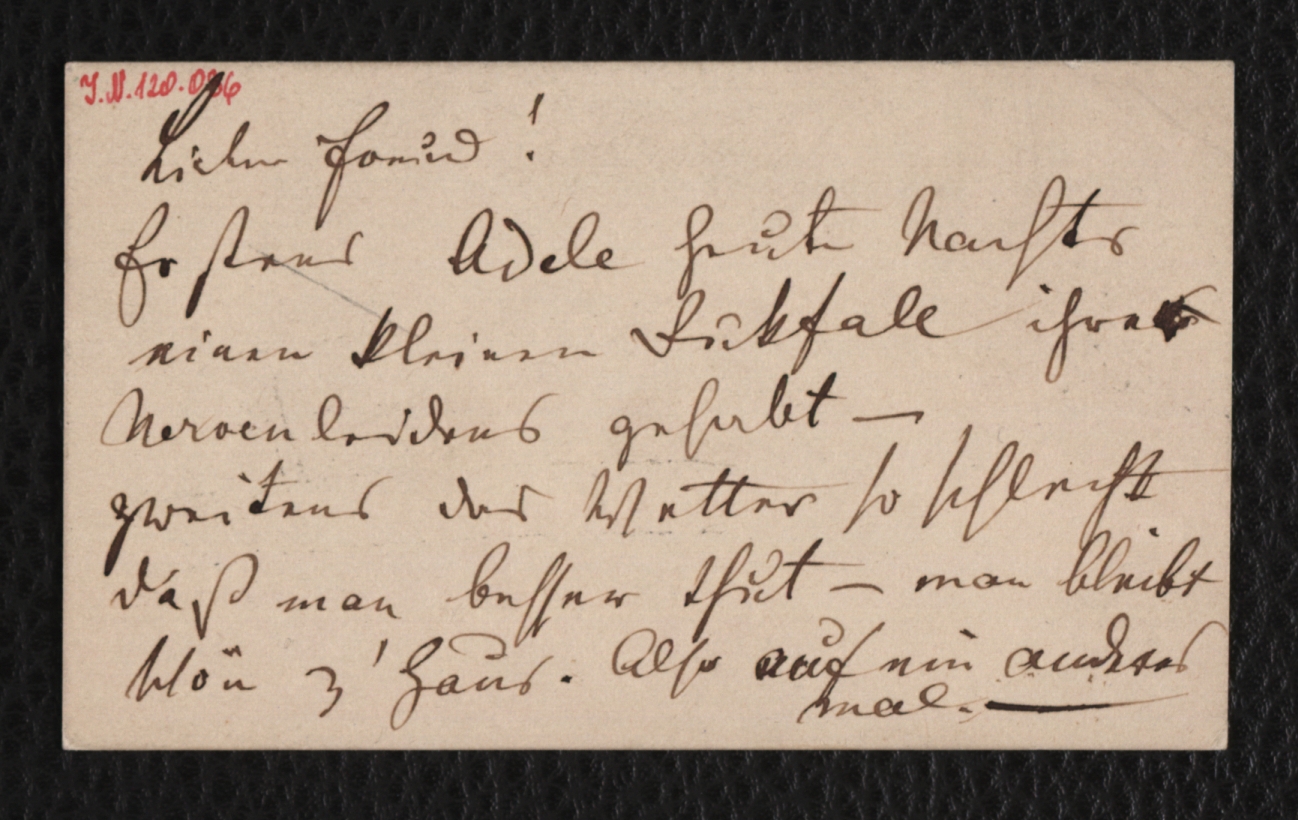 I.N. 120.086
Lieber Freund!
Erstens Adele heute Nachts
einen kleinen Rückfall ihres
Nervenleidens gehabt —
zweitens das Wetter so schlecht
daß man besser thut — man bleibt
schön z' Haus. Also auf ein anderes
mal. —